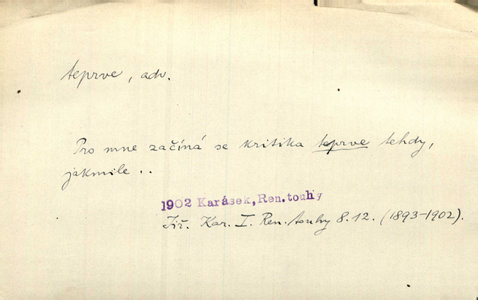 teprve, adv.
Pro mne začíná se kritika teprve tehdy,
jakmile..
1902 Karásek, Ren. touhy
Jiř. Kar. I. Ren. touhy 8.12. (1893-1902).